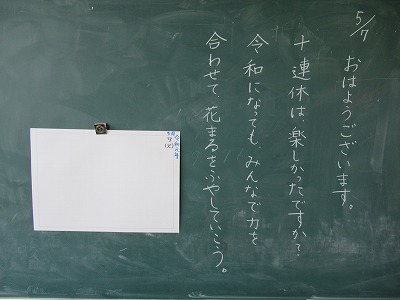 5/7
おはようございます。
十連休は、楽しかったですか?
令和になっても、みんなで力を
合わせて、花まるをふやしていこう。
令和元年
5月7日(火)